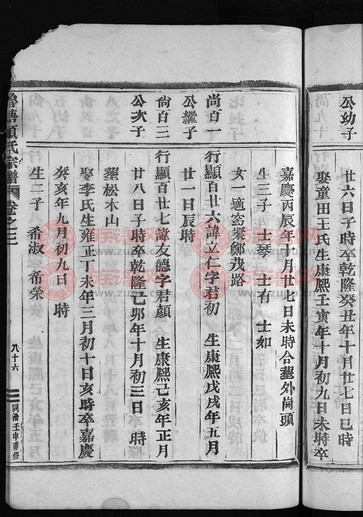 公幼子
廿六日子時卒乾隆癸丑年十月廿七日巳時
娶童田王氏生康熙壬寅年十月初九日未時卒
嘉慶丙辰年十月廿七日未時合塟外崗頭
生三子 士琴 士有 士如
女一適
尚百一
公繼子
行顯百廿六諱立仁字君初 生康熙戊戌年五月
廿一日辰時
尚百三
公次子
行顯百廿七諱友德字君顏 生康熙己亥年十月
廿八日子時卒乾隆己卯年十月初三日 時
塟松木山
娶李氏生雍正丁未年三月初十日亥時卒嘉慶
癸亥年九月初九日 時
生二子 希淑 希榮
氏宗譜
卷之三
八十六
同治壬申重修